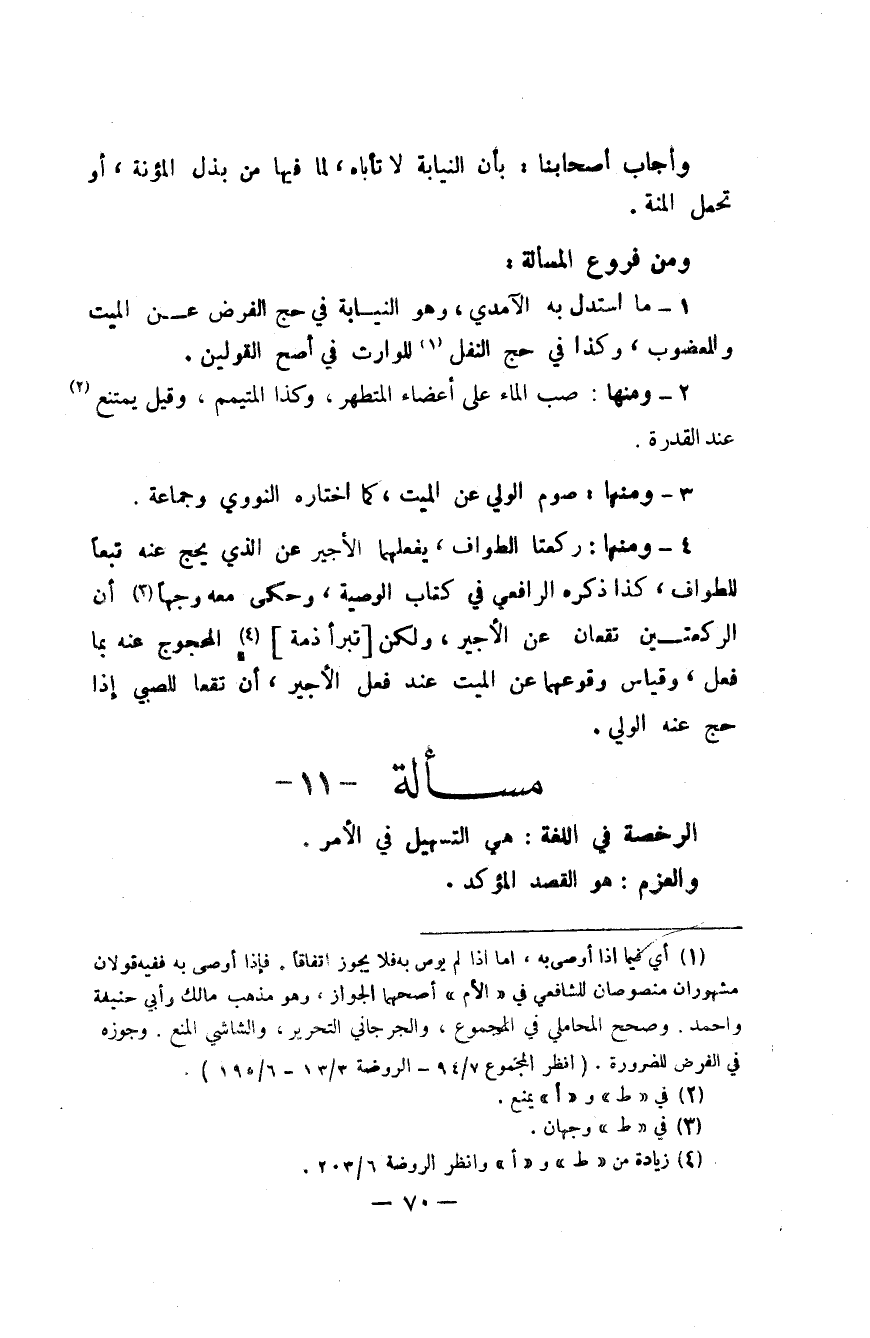 وأجاب أصحابنا : بأن النيابة لا تأباه ، لما فيها من بذل المؤنة ، أو
تحمل المنة .
ومن فروع المسألة :
١ – ما استدل به الآمدي ، وهو النيــابة في حج الفرض عــن الميت
والمعضوب ، وكذا في حج النفل (١) للوارث في أصح القولين .
٢ – ومنها : صب الماء على أعضاء المتطهر ، وكذا المتيمم ، وقيل يمتنع (٢)
عند القدرة .
٣ – ومنها : صوم الولي عن الميت ، كما اختاره النووي وجماعة .
٤ – ومنها : ركعتا الطواف ، يفعلهما الأجير عن الذي يحج عنه تبعاً
للطواف ، كذا ذكره الرافعي في كتاب الوصية ، وحكى معه وجهاً (٣) أن
الركعتــين تقعان عن الأجير ، ولكن [ تبرأ ذمة ] (٤) المحجوج عنه بما
فعل ، وقياس وقوعهما عن الميت عند فعل الأجير ، أن تقعا للصبي إذا
حج عنه الولي .
مســـألة – ١١ –
الرخصة في اللغة : هي التسهيل في الأمر .
والعزم : هو القصد المؤكد .
(١) أي فيما اذا أوصى به ، اما اذا لم يوص به فلا يجوز اتفاقاً . فإذا أوصى به ففيه قولان
مشهوران منصوصان للشافعي في « الأم » أصحهما الجواز ، وهو مذهب مالك وأبي حنيفة
واحمد . وصحح المحاملي في المجموع ، والجرجاني التحرير ، والشاشي المنع . وجوزه
في الفرض للضرورة . ( انظر المجموع ٩٤/٧ – الروضة ١٣/٣ – ١٩٥/٦ ) .
(٢) في « ط » و « أ » يمنع .
(٣) في « ط » وجهان .
(٤) زيادة من « ط » و « أ » وانظر الروضة ٢٠٣/٦ .
– ٧٠ –